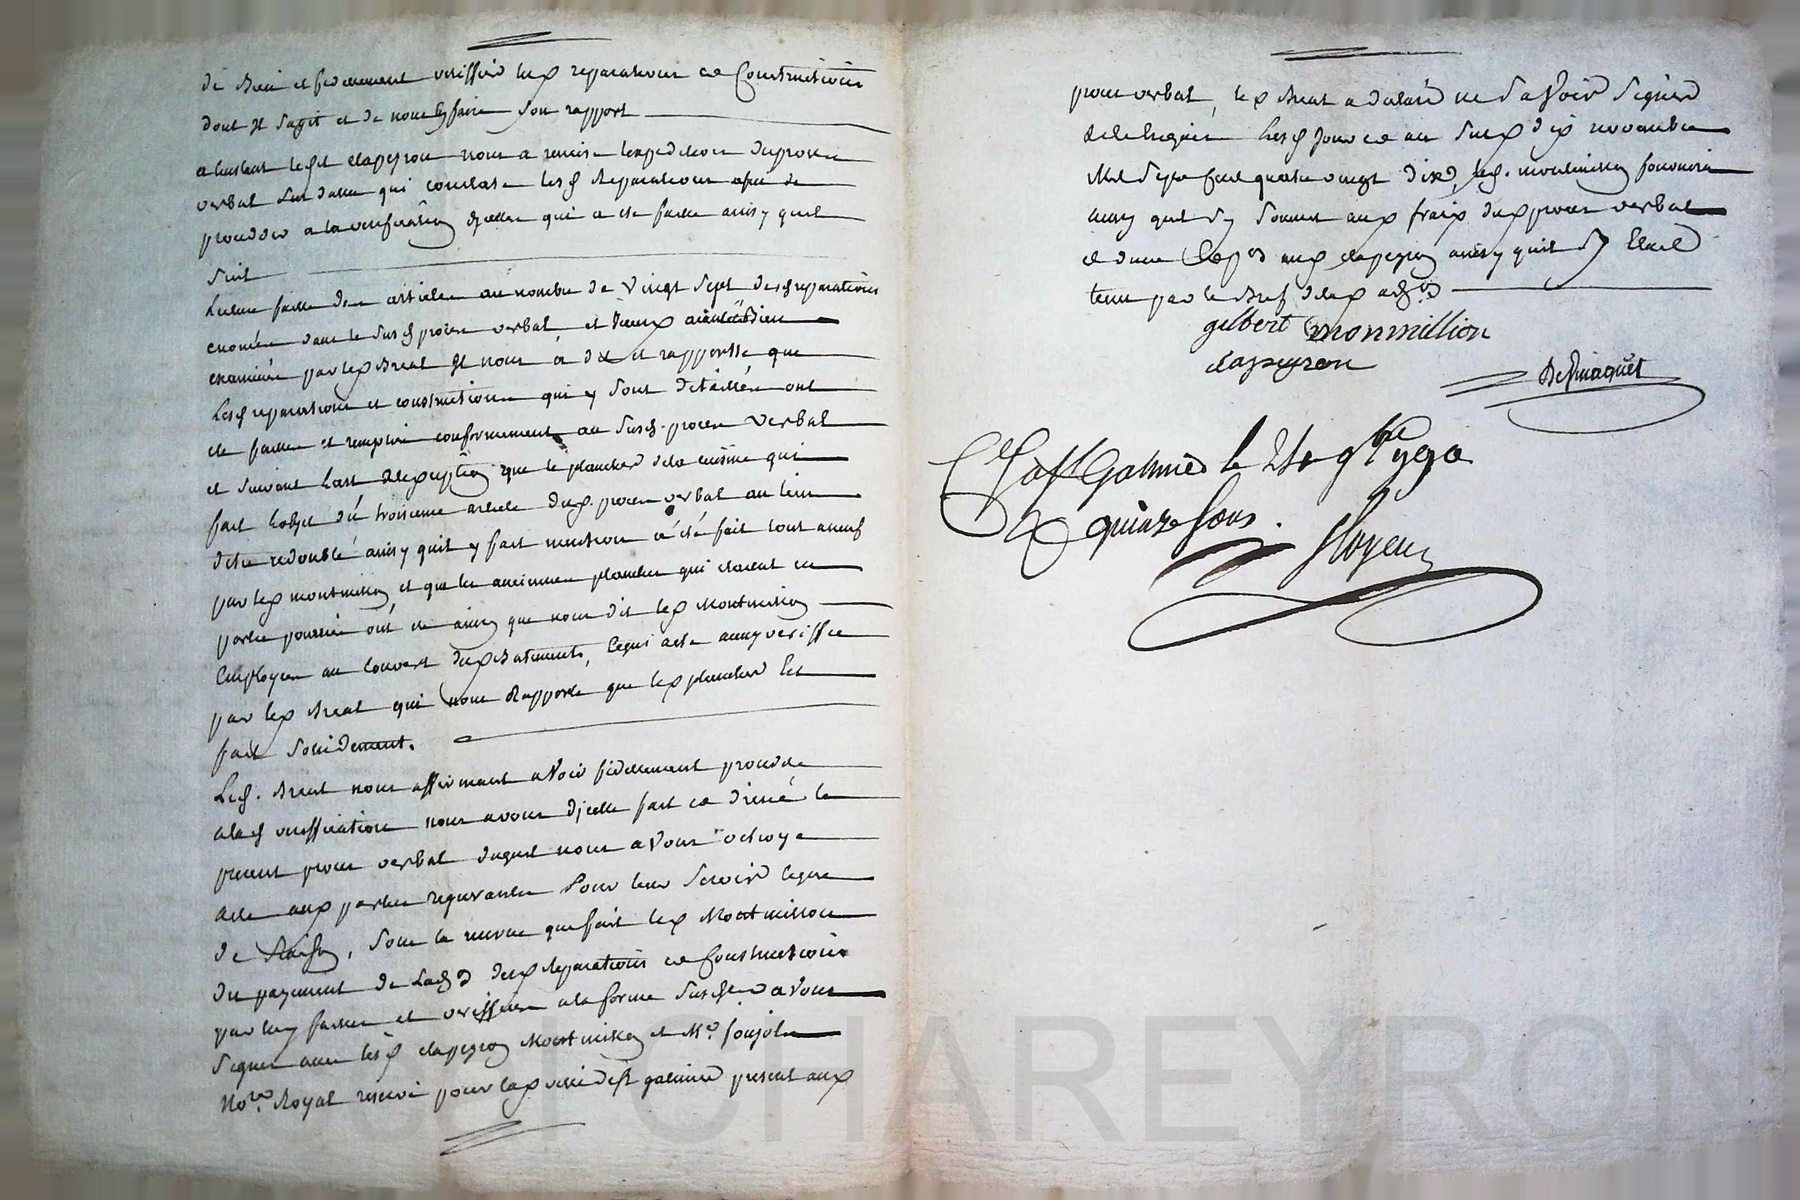 de bien et fidelement veriffier les reparations et Constructions
dont Il s'agit et de nous En faire Son rapport
a linstant led clapeyron nous a remis lexpedition du proces
verbal Sus datte qui constate lesd Reparations afin de
proceder a la veriffication dycelles qui a ete faitte ainsy quil
Suit
Lecture faitte des articles au nombre de vingt Sept desd reparations
enoncée dans le Susd proces verbal et Iceux
examinés par led Breat Il nous à dit et rapporté que
Lesd reparations et constructions qui y Sont détaillés ont
ete faittes et remplies conformement au Susd. proces verbal
et suivant Lart a lexception que le plancher de la cuisine qui
fait lobjet du troisieme article dud. proces verbal au lieu
detre redoublé ainsy quil y fait mention à été fait tout aneuf
par led montmillon et que les anciennes planches qui etaient en
partie pourries ont été ainsy que nous dit led Montmillon
Employées au Couvert dud Batiments, Ce qui a ete aussy veriffié
par led Breat qui nous Rapporte que led plancher Est
fait Solidement.
Led. Breat nous affirmant avoir fidellement procedé
a lad veriffication nous avons dycelle fait et dressé le
present proces verbal duquel nous avons octroyé
acte aux parties requerantes Pour leur Servir Ce que
de raison, Sous la reserve que fait led Montmillon
du payement de desd Reparations et Constructions
par luy faittes et veriffiées a la forme Susd et avons
Signé avec lesd clapeyron Montmillon et Me. foujols
No.re Royal reservé pour lad ville de St galmier present aux
proces verbal, led Breat a declaré ne Savoir Signer
de ce Enquis Lesd Jour et an Susd dix novembre
Mil Sept Cent quatre vingt dix, led. montmillon fournira
aussy quil Sy Soumet aux fraix dud proces verbal
et dune Exp.on aud clapeyron ainsy quil Sy Etait
tenu par le Bref de lad
gilbert monmillion
clapeyron
Delmaquet
Ct. a St Galmier le 24 9bre 1790
R quinze Sous.